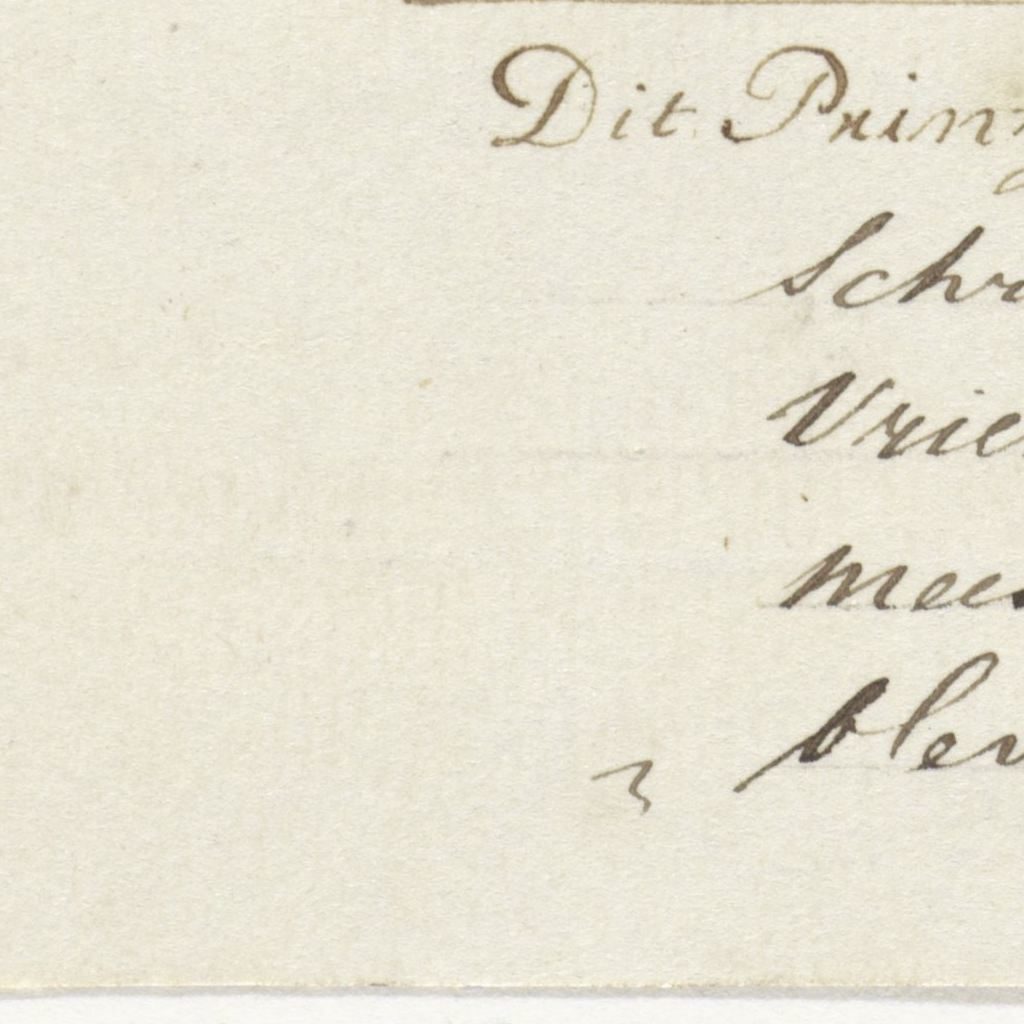 Dit Prin
Schr
Vrie
mees
blev